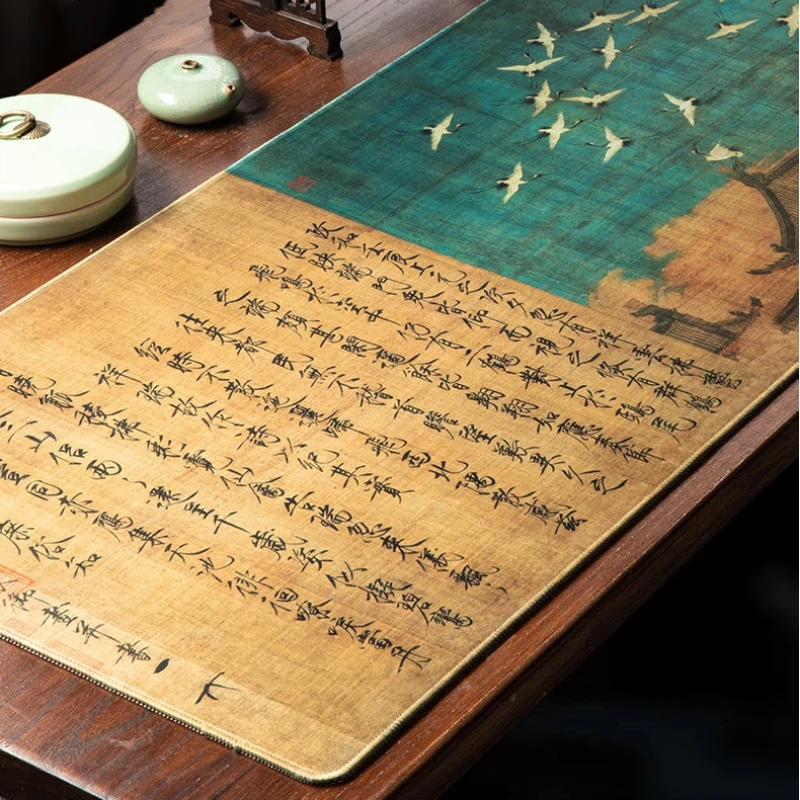 政和壬辰上元之次夕忽有祥雲拂鬱
低映端門衆皆仰而視之倏有群鶴
飛鳴於空中仍有二鶴對止於鴟尾
之端頗甚閑適餘皆翱翔如應奏節
往來都民無不稽首瞻望歎異久之
經時不散迤邐歸飛西北隅散感茲
祥瑞故作詩以紀其實
曉觚稜拂彩霓仙禽告瑞忽來儀飄
三山侶兩兩還呈千歲姿似擬碧鸞
豈同赤鴈集天池徘徊嘹唳當丹
庶俗知
御畫并書